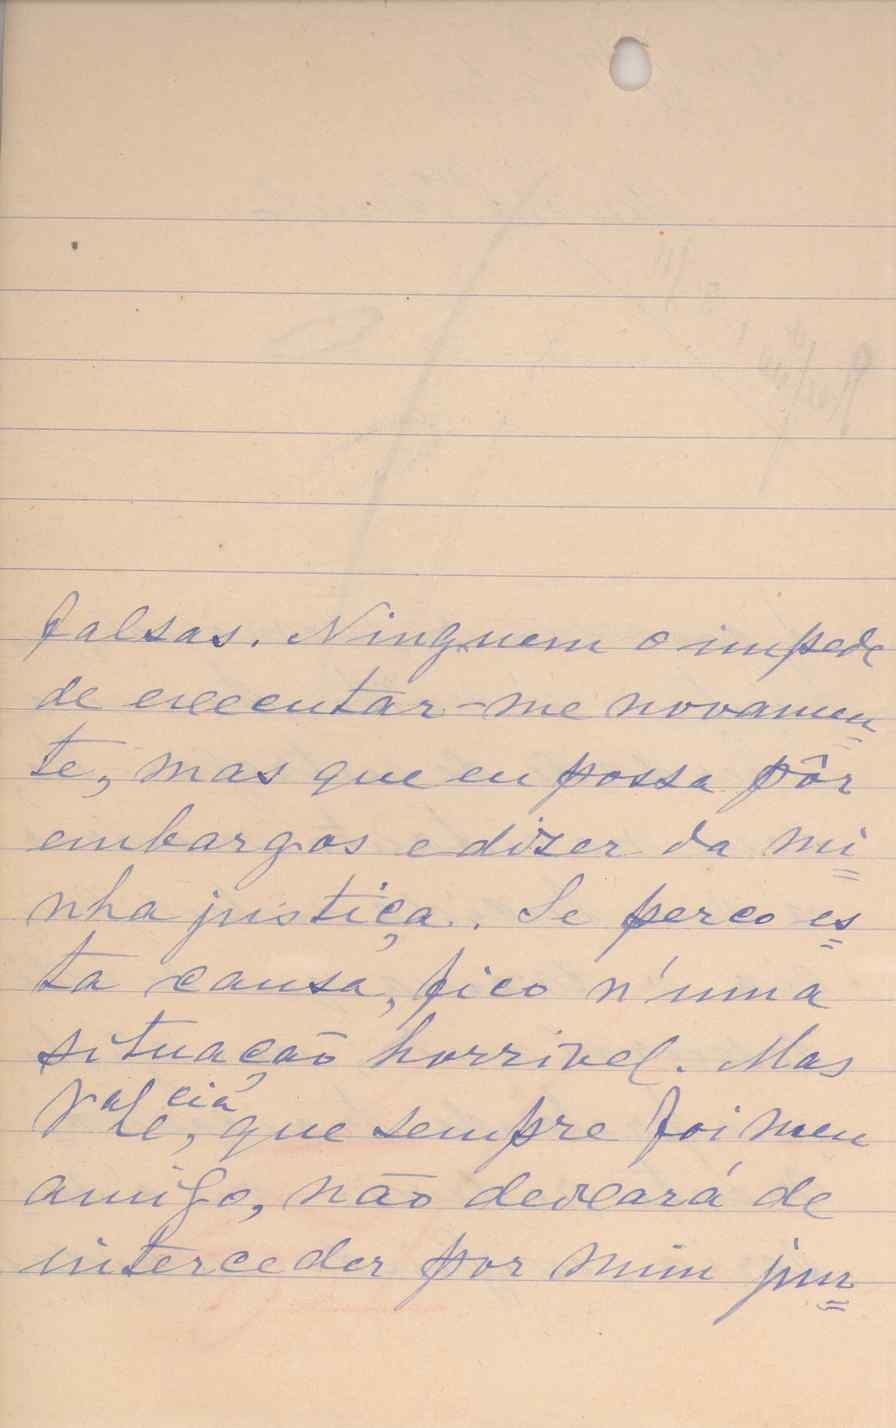 falsas. Ninguem o impede
de executar-me novamen=
te, mas que eu possa pôr
embargos e dizer da mi=
nha justiça. Se perco es=
ta causa, fico n'uma
situação horrivel. Mas
V.al cia
le, que sempre foi meu
amigo, não deixará de
interceder por mim jun=